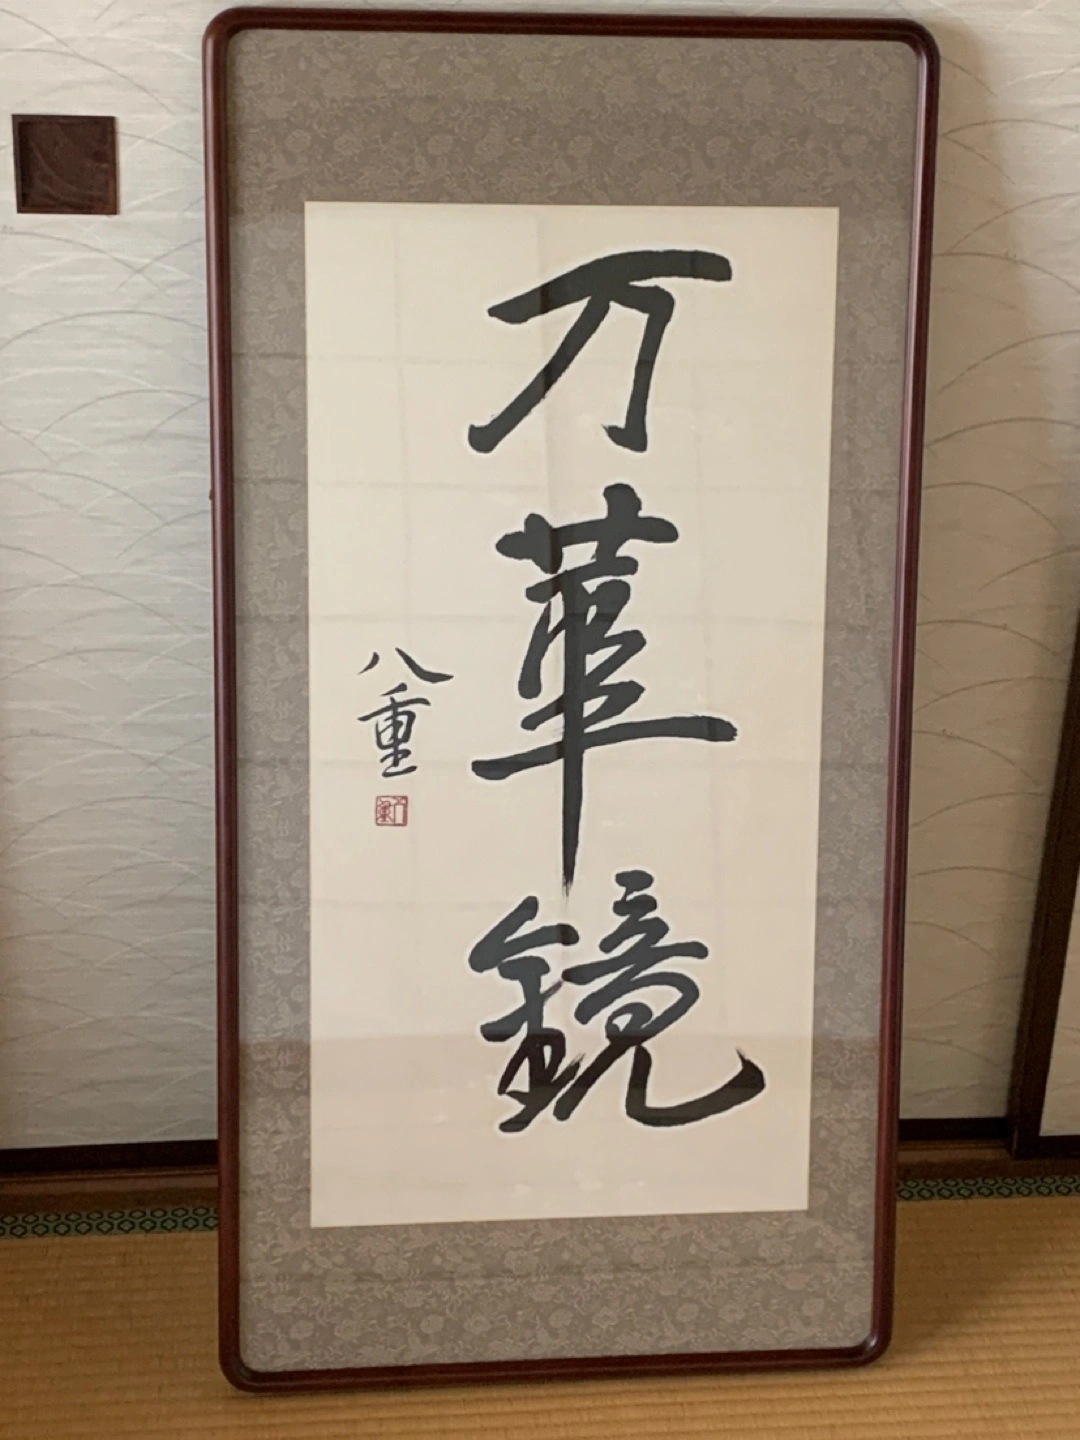 万華鏡
八重